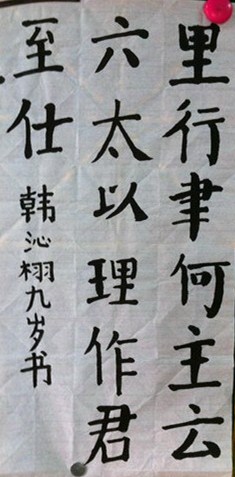 里行聿何主云
六太以理作君
至仕
韩沁栩九岁书